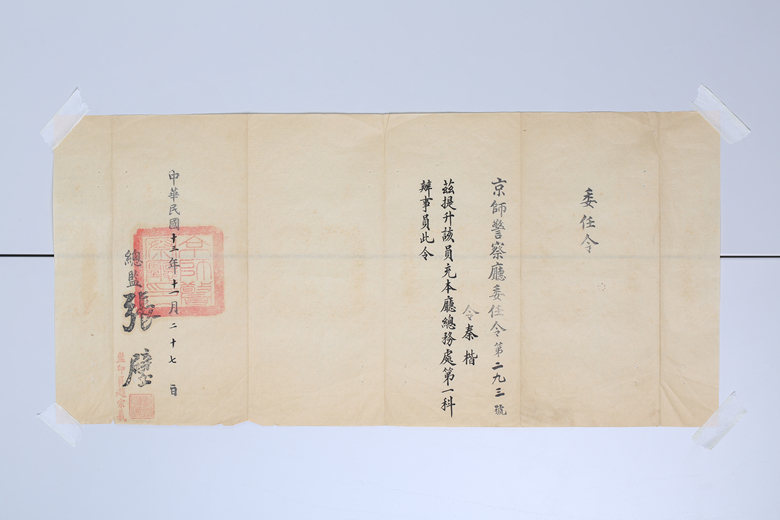 委任令
京師警察廳委任令第二九三號
令秦楷
茲提升該員充本廳總務處第一科
辦事員此令
中華民國十三年十一月二十七日
總監張璧